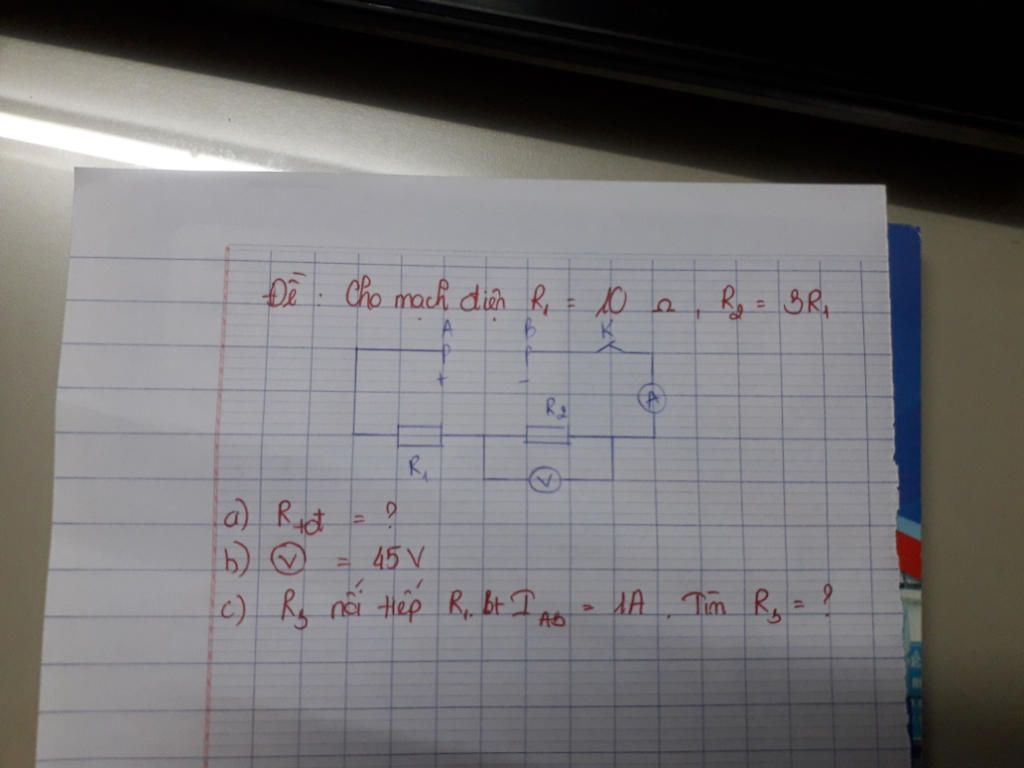 Đề : Cho mạch điện R₁ = 10 Ω , R₂ = 3R₁
A B K
+ -
A
R₂
R₁
V
a) Rtđ = ?
b) V = 45 V
c) R₃ nối tiếp R₁. bt I AB = 1A . Tìm R₃ = ?